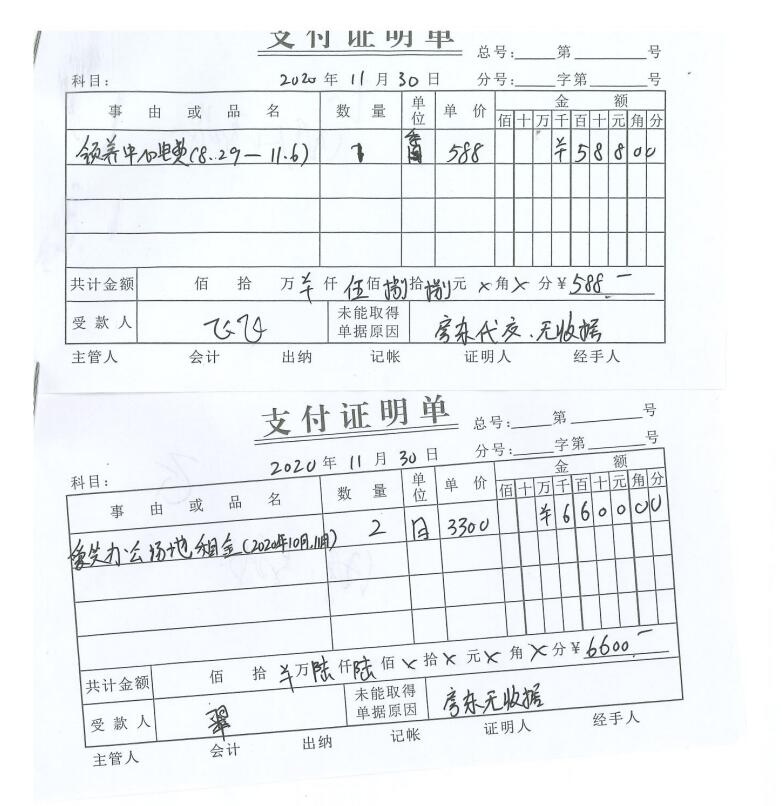 支付证明单
总号:____第____号
科目: 2020年11月30日 分号:____字第____号
事由或品名 数量 单位 单价 金额
佰十万千百十元角分
领养中心电费(8.29—11.6) 1 588 ¥58800
共计金额 佰拾万¥仟伍佰捌拾捌元×角×分¥588.—
受款人 飞飞 未能取得单据原因 房东代交.无收据
主管人 会计 出纳 记帐 证明人 经手人
支付证明单
总号:____第____号
科目: 2020年11月30日 分号:____字第____号
事由或品名 数量 单位 单价 金额
佰十万千百十元角分
办公场地租金(2020年10月,11月) 2 月 3300 ¥660000
共计金额 佰拾¥万陆仟陆佰×拾×元×角×分¥6600.—
受款人 未能取得单据原因 房东无收据
主管人 会计 出纳 记帐 证明人 经手人